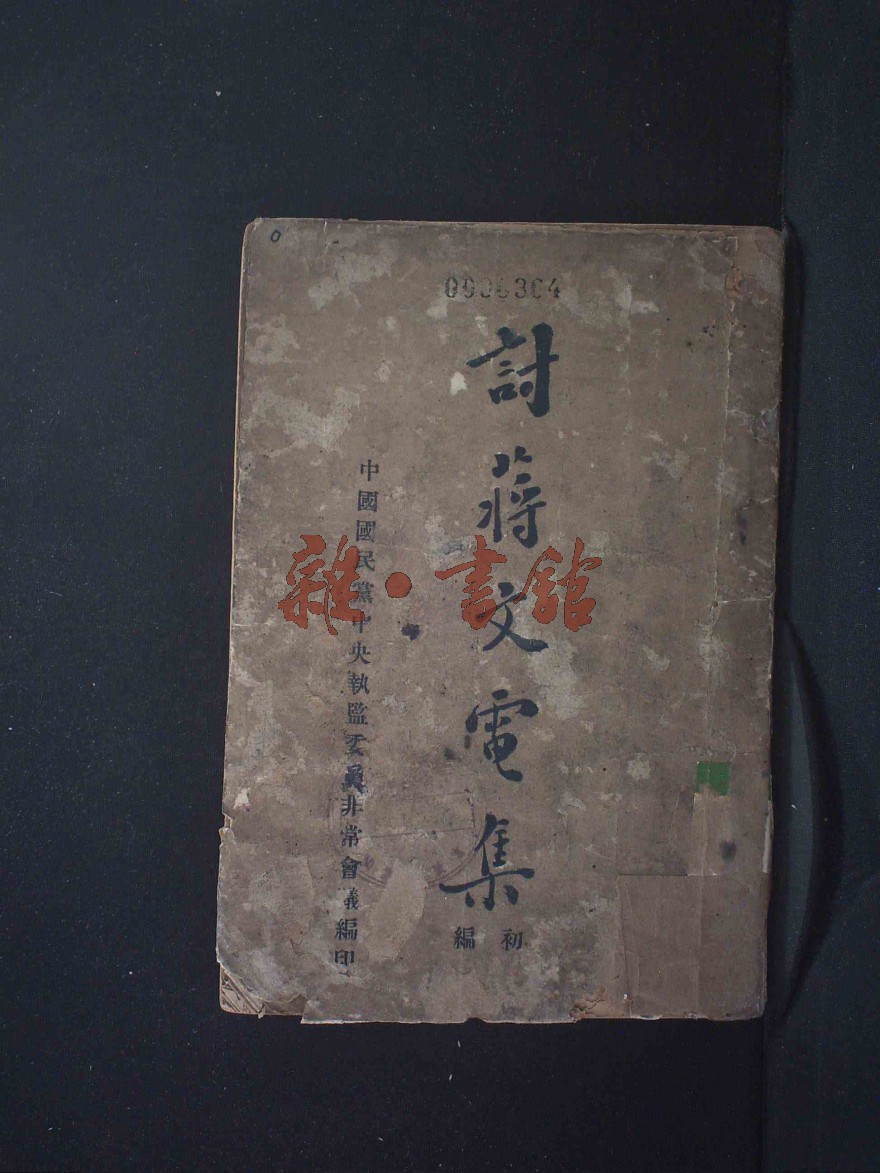 討蔣文電集
初編
中國國民黨中央執監委員非常會議編印
雜·書館